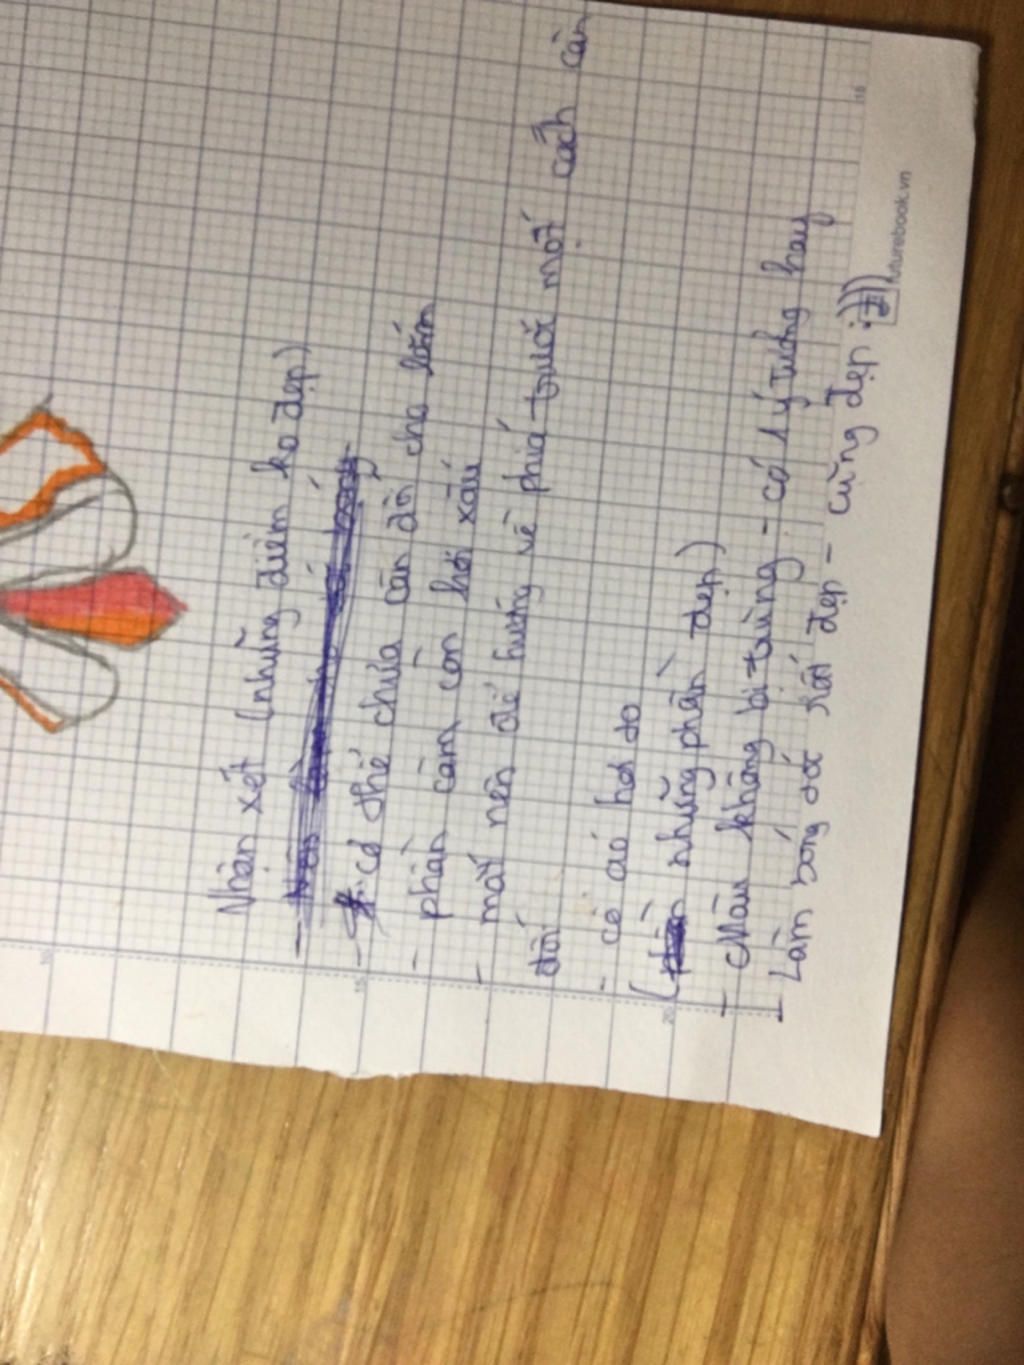 Nhận xét (những điểm ko đẹp)
- Cơ thể chưa cân đối cho lắm
- phần cằm còn hơi xấu
- mắt nên để hướng về phía trước một cách cân
đối
- cổ áo hơi to
( những phần đẹp)
- Màu không bị trùng - có lý tưởng hay
- Làm bóng tóc rất đẹp - cũng đẹp :))
futurebook.vn
10
15
20
18